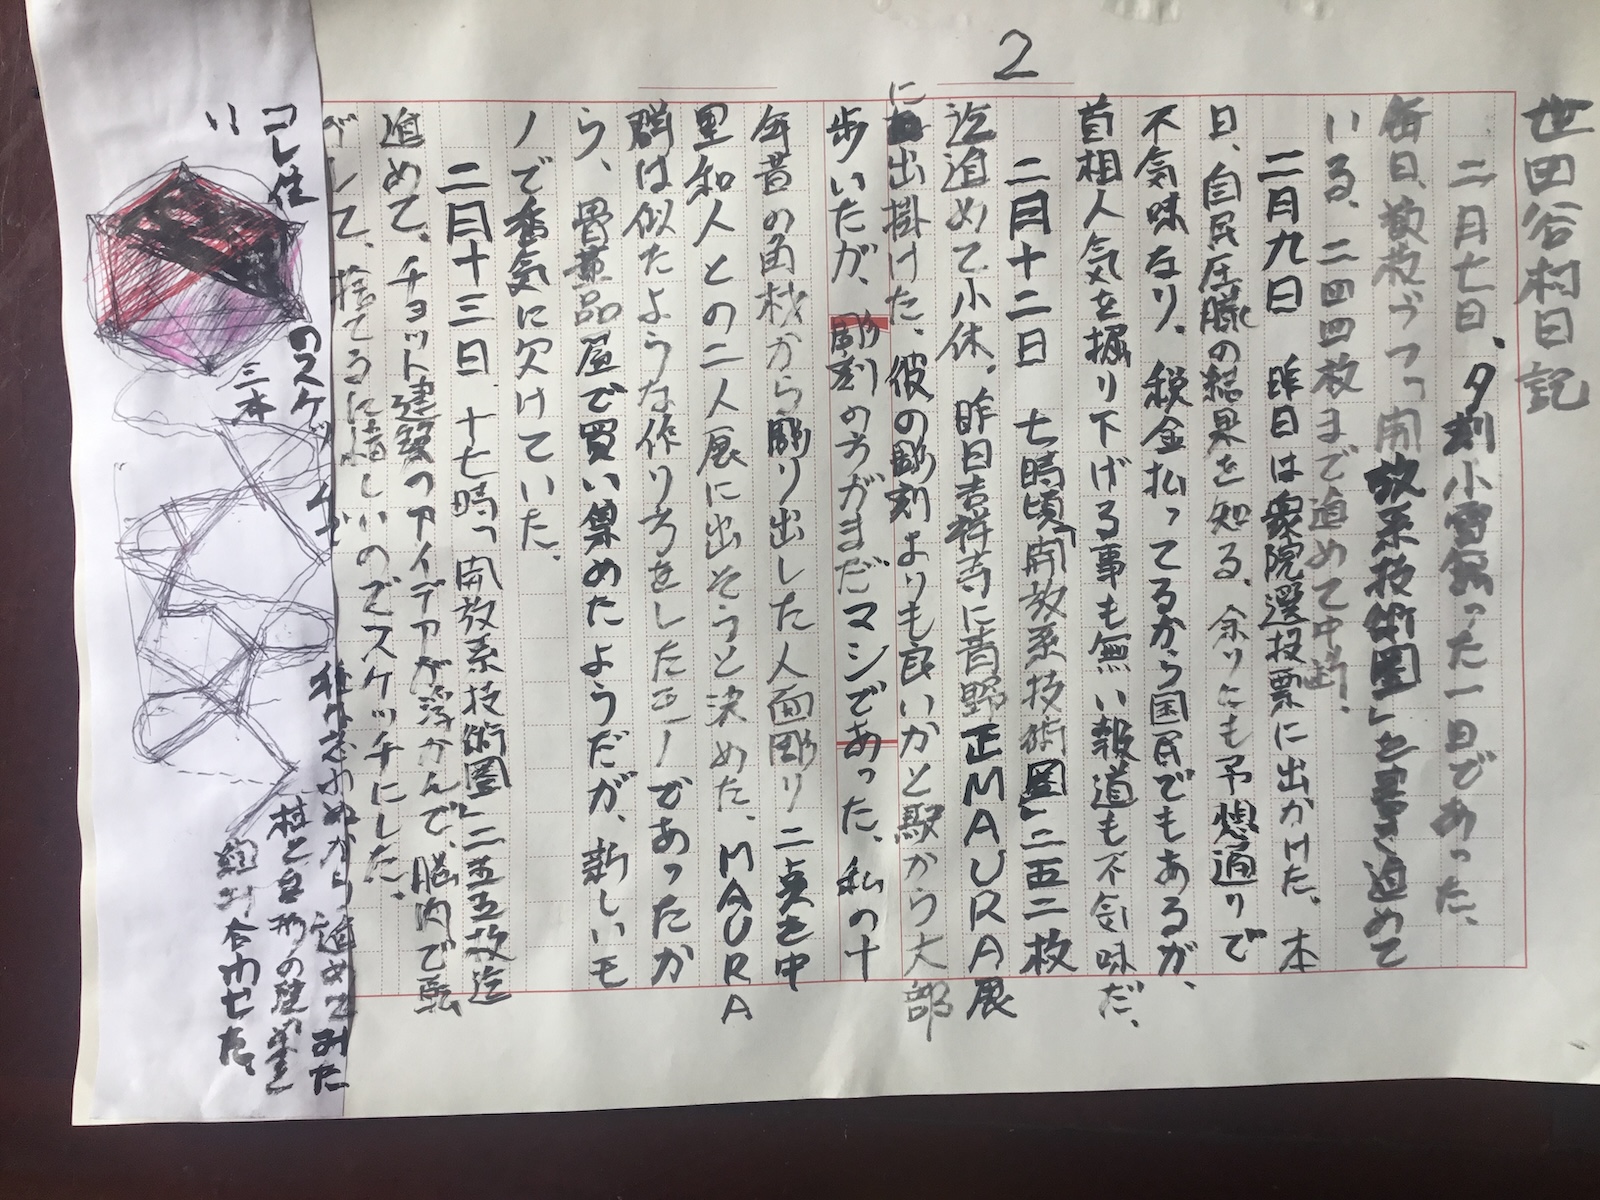 2
世田谷村日記
二月七日、夕刻小雪舞った一日であった、
毎日、数枚づつ「開放系技術圏」を書き進めて
いる、二四四枚まで進めて中断、
二月九日 昨日は衆院選投票に出かけた。本
日、自民圧勝の結果を知る、余りにも予想通りで
不気味なり、税金払ってるから国民でもあるが、
首相人気を掘り下げる事も無い報道も不気味だ、
二月十二日 七時頃「開放系技術圏」二五二枚
迄進めて小休、昨日吉祥寺に菅野正MAURA展
に出掛けた、彼の彫刻よりも良いかと駅から大部
歩いたが、彫刻の方がまだマシであった、私の十
年昔の角材から彫り出した人面彫り二点を中
里和人との二人展に出そうと決めた、MAURA
群は似たような作り方をしたモノであったか
ら、骨董品屋で買い集めたようだが、新しいモ
ノで香気に欠けていた、
二月十三日、十七時、「開放系技術圏」二五五枚迄
進めて、チョット建築のアイデアが浮かんで、脳内で転
がして、捨てるに惜しいのでスケッチにした、
い
三本
忘れぬから進めてみた
村と台形の
組み合わせた、